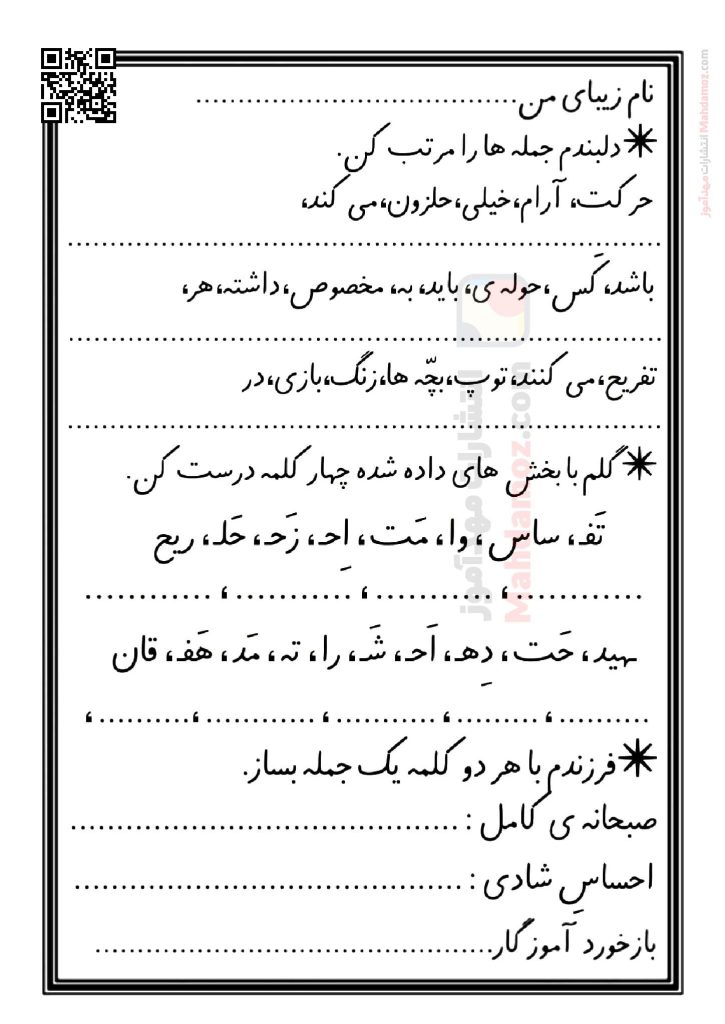 نام زیبای من......................................
✴دلبندم جمله ها را مرتب کن.
حرکت، آرام،خیلی،حلزون،می کند،
......................................................................
باشد، کَس ،حوله ی، باید، به، مخصوص ،داشته،هر،
......................................................................
تفریح،می کنند،توپ،بچّه ها،زنگ،بازی،در
......................................................................
✴گلم با بخش های داده شده چهار کلمه درست کن.
تَفـ ، ساس ، وا ، مَت ، اِحـ ، زَحـ ، حَلـ ، ریح
............. ، ............ ، ............ ، .............
ـهید ، حَت ، دِهـ ، اَحـ ، شَـ ، را ، ته ، مَد ، هَفـ ، قان
.......... ، ......... ، ........... ، ............ ، .......... ،
✴فرزندم با هر دو کلمه یک جمله بساز.
صبحانه ی کامل : ..........................................
احساسِ شادی : ..........................................
بازخورد آموزگار...........................................
انتشارات مهدآموز
Mahdamoz.com
انتشارات مهدآموز Mahdamoz.com